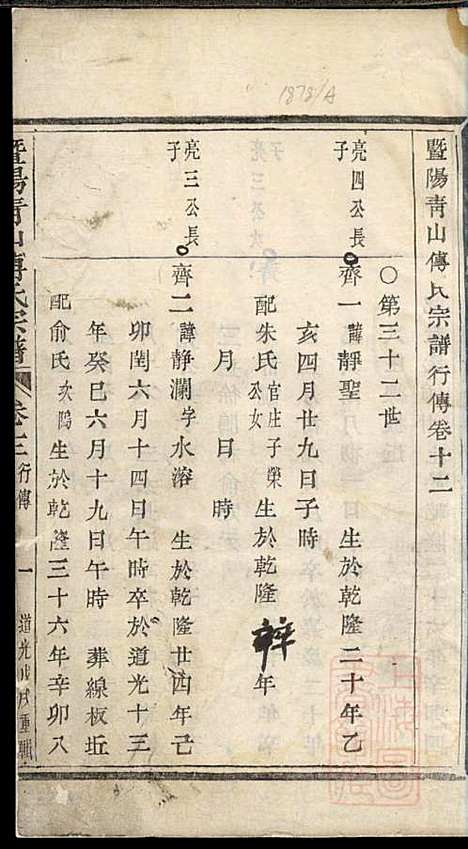 1878/A
暨陽靑山傅氏宗譜行傳卷十二
〇第三十二世
亮四公長子
齊一諱靜聖 生於乾隆二十年乙
亥四月廿九日子時
配朱氏官庄子榮公女 生於乾隆 年
月 日 時
亮三公長子
齊二諱静瀾字水溶 生於乾隆廿四年己
卯閏六月十四日午時卒於道光十三
年癸巳六月十九日午時 葬線板坵
配俞氏次塢 生於乾隆三十六年辛卯八
暨陽靑山傅氏宗譜 卷十二 行傳 一 道光戊戌重輯